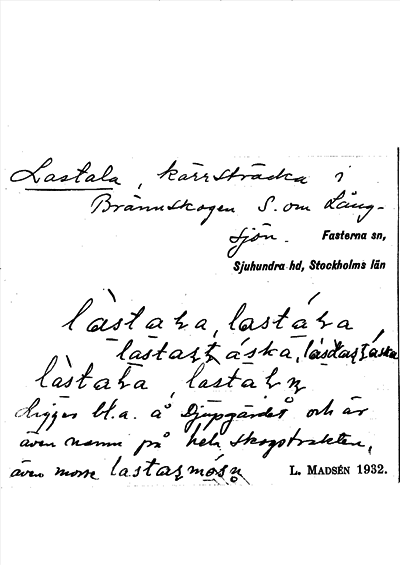 Lastala, kärrsträcka i
Brännskogen S. om Lång-
sjön. Fasterna sn,
Sjuhundra hd, Stockholms län
làstaha, lastáha
áska,
làstaha, lastahn
Ligger bl.a. å Djupgärdet och är
även namn på hela skogstrakten,
även mosse L. MADSÉN 1932.